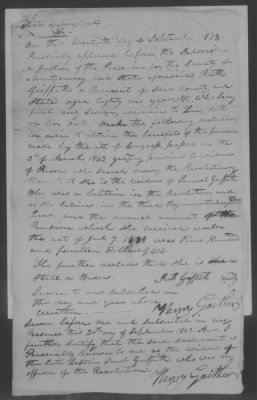 State of Maryland
On this twentieth day of September 1853
Personally appeared before the Subscriber
a Justice of the Peace in for the County of
Montgomery and State aforesaid Ruth
Griffith a Resident of said County and
State aged Eighty one years, who being
first duly sworn according to Law, doth
on her oath make the following declaration
in order to obtain the benefits of the provision
made by the act of Congress passed on the
3rd of March 1853, granting pensions to widows
of Persons who served during the Revolutionary
War. That she is the widow of Samuel Griffith
who was a Captain in the Revolution and
as she believes in the third Regiment
Line and the annual amount of the
Pension which she received under
the act of July 7 1838 was Four Hundred
and fourteen Dollars $414.
She further declares that she is
still a Widow
Ruth Griffith
Sworn to and subscribed on
the day and year above
written
Henry Gaither
Sworn before me and Subscribed in my
presence this 20th day of September 1853. And I
further certify that the said declarant is
Personally Known to me as the widow of
the late Captain Samuel Griffith who was an
officer of the Revolution
Henry Gaither